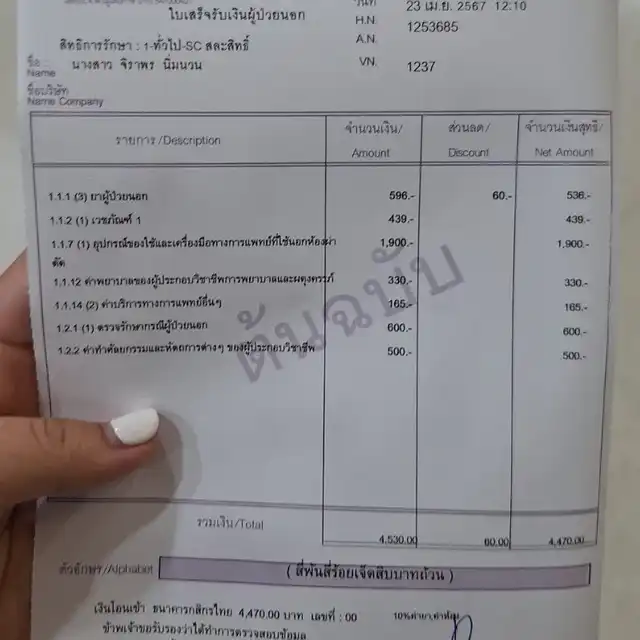 ใบเสร็จรับเงินผู้ป่วยนอก
วันที่ 23 เม.ย. 2567 12:10
H.N. 1253685
สิทธิการรักษา : 1-ทั่วไป-SC สละสิทธิ์
A.N.
ชื่อ นางสาว จิราพร นิ่มนวน
Name
VN. 1237
ชื่อบริษัท
Name Company
รายการ/Description จำนวนเงิน/ Amount ส่วนลด/ Discount จำนวนเงินสุทธิ/ Net Amount
1.1.1 (3) ยาผู้ป่วยนอก 596.- 60.- 536.-
1.1.2 (1) เวชภัณฑ์ 1 439.- 439.-
1.1.7 (1) อุปกรณ์ของใช้และเครื่องมือทางการแพทย์ที่ใช้นอกห้องผ่า 1,900.- 1,900.-
ตัด
1.1.12 ค่าพยาบาลของผู้ประกอบวิชาชีพการพยาบาลและผดุงครรภ์ 330.- 330.-
1.1.14 (2) ค่าบริการทางการแพทย์อื่นๆ 165.- 165.-
1.2.1 (1) ตรวจรักษากรณีผู้ป่วยนอก 600.- 600.-
1.2.2 ค่าทำศัลยกรรมและหัตถการต่างๆ ของผู้ประกอบวิชาชีพ 500.- 500.-
ต้นฉบับ
รวมเงิน/Total 4,530.00 60.00 4,470.00
ตัวอักษร/Alphabet ( สี่พันสี่ร้อยเจ็ดสิบบาทถ้วน )
เงินโอนเข้า ธนาคารกสิกรไทย 4,470.00 บาท เลขที่ : 00
ข้าพเจ้าขอรับรองว่าได้ทำการตรวจสอบข้อมูล